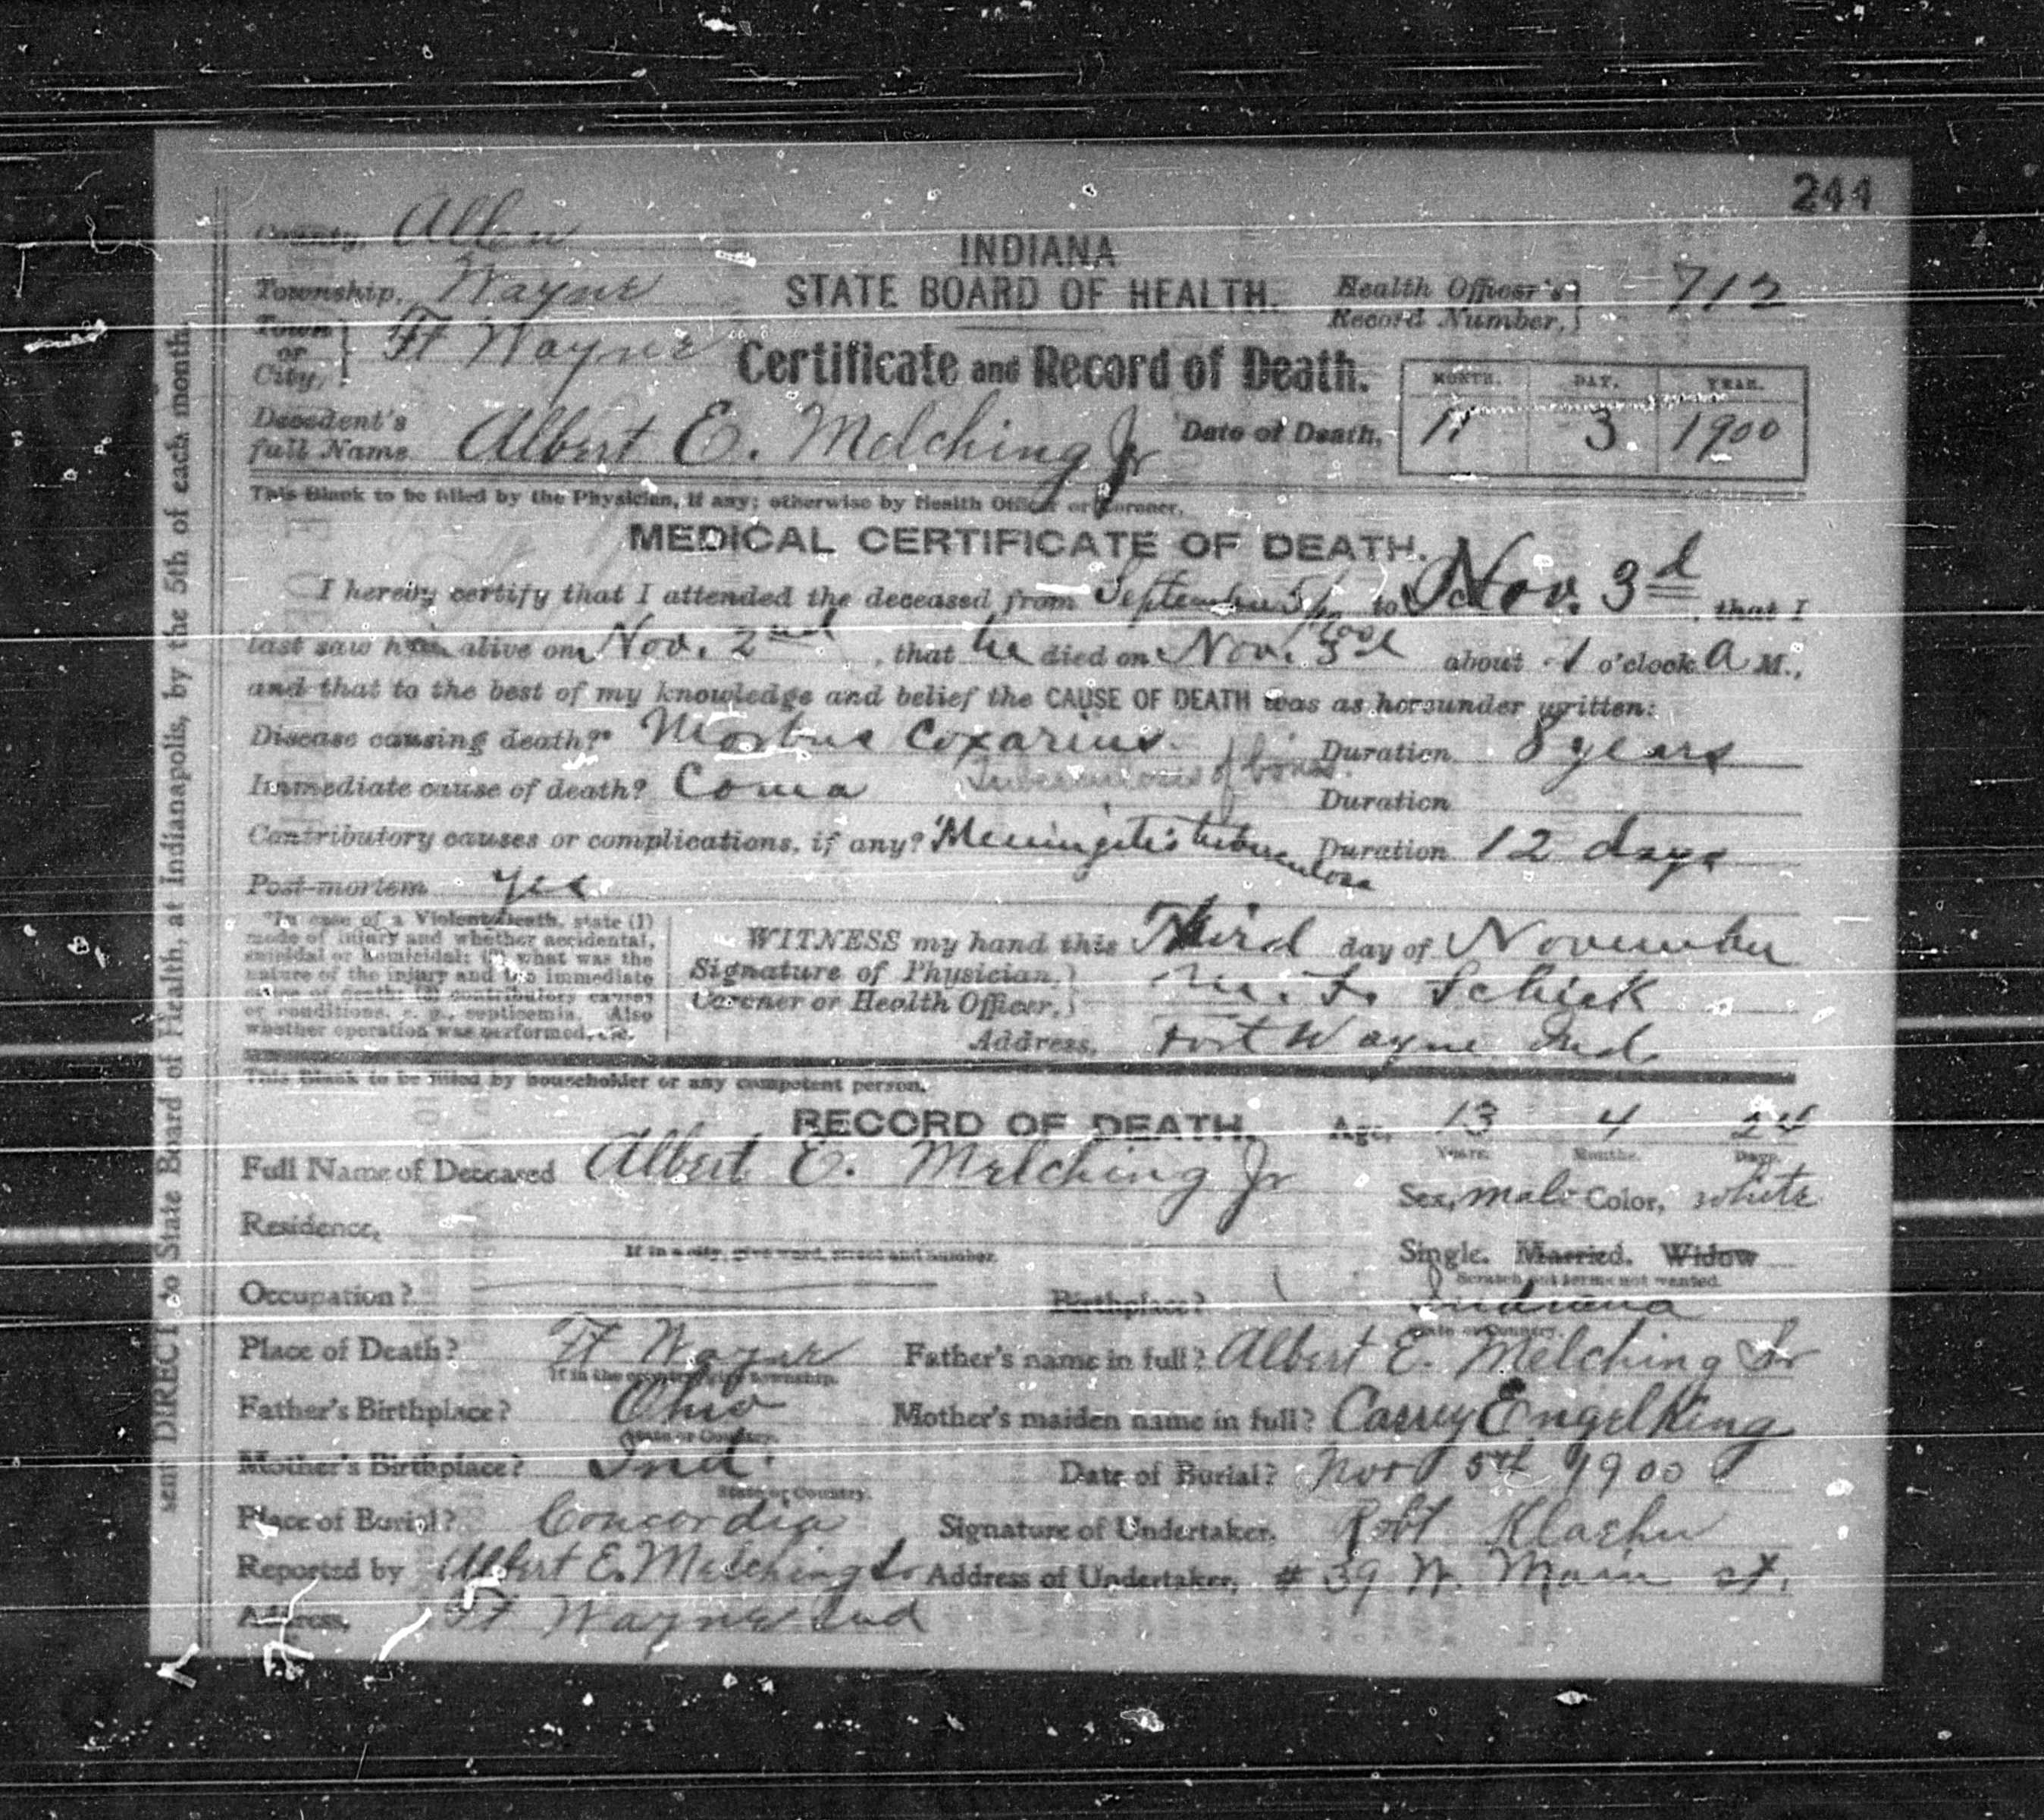 244
County, Allen
INDIANA
Township, Wayne
STATE BOARD OF HEALTH.
Health Officer's Record Number, 712
Town or City, Ft Wayne
Certificate and Record of Death.
MONTH. DAY. YEAR.
Decedent's full Name Albert E. Melching Jr
Date of Death, 11 3 1900
This Blank to be filled by the Physician, if any; otherwise by Health Officer or Coroner.
MEDICAL CERTIFICATE OF DEATH.
I hereby certify that I attended the deceased from September 5/1900 to Nov. 3d, that I
last saw him alive on Nov. 2nd, that he died on Nov. 3d about 1 o'clock A M.,
and that to the best of my knowledge and belief the CAUSE OF DEATH was as hereunder written:
Disease causing death?* Morbus Coxarius. Duration 8 years
Tuberculosis of bones.
Immediate cause of death? Coma Duration
Contributory causes or complications, if any? Meningitis tuberculosa Duration 12 days
Post-mortem yes
*In case of a Violent Death, state (1)
mode of injury and whether accidental,
suicidal or homicidal; (2) what was the
nature of the injury and the immediate
cause of death; (3) contributory causes
or conditions, e. g., septicemia. Also
whether operation was performed, etc.
WITNESS my hand this Third day of November
Signature of Physician, Coroner or Health Officer, M. F. Schick
Address, Fort Wayne Ind
This Blank to be filled by householder or any competent person.
RECORD OF DEATH. Age, 13 4 24
Years. Months. Days.
Full Name of Deceased Albert E. Melching Jr
Sex, male Color, white
Residence,
If in a city, give ward, street and number.
Single. Married. Widow
Scratch out terms not wanted.
Occupation?
Birthplace? Indiana
State or Country.
Place of Death? Ft Wayne
If in the country, give township.
Father's name in full? Albert E. Melching Sr
Father's Birthplace? Ohio
State or Country.
Mother's maiden name in full? Carrey Engelking
Mother's Birthplace? Ind.
State or Country.
Date of Burial? Nov 5th 1900
Place of Burial? Concordia
Signature of Undertaker. Robt Klaehn
Reported by Albert E. Melching Sr
Address of Undertaker, # 39 W. Main st.
Address, Ft Wayne Ind
sent DIRECT to State Board of Health, at Indianapolis, by the 5th of each month.